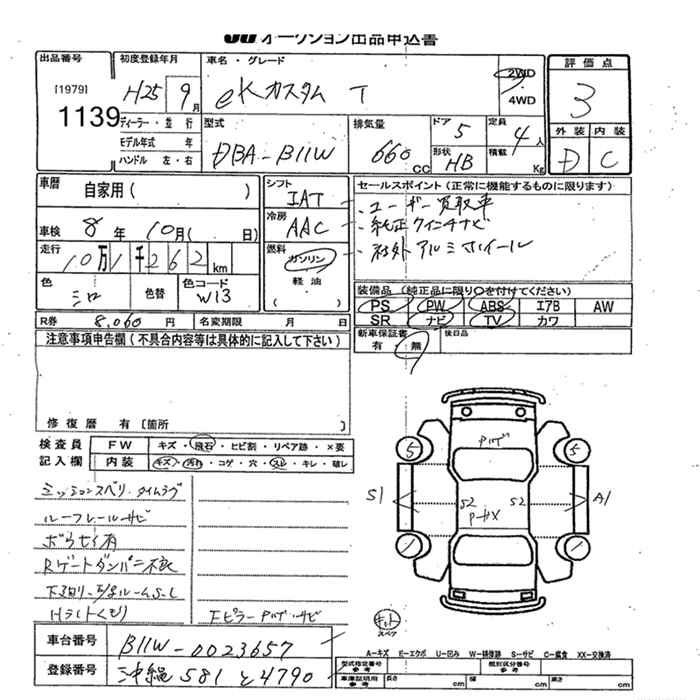 JU オークション出品申込書
出品番号 初度登録年月 車名・グレード 2WD 4WD 評価点
[1979] 1139 H25 9月 eKカスタム T 3
ディーラー・並行 型式 排気量 ドア 5 定員 4人 外装 内装
モデル年式 年 DBA-B11W 660cc 形状 HB 積載 Kg D C
ハンドル 左・右
車歴 自家用( ) シフト IAT セールスポイント(正常に機能するものに限ります)
車検 8年 10月( 日) 冷房 AAC ・ユーザー買取車
・純正クインチナビ
走行 10万1千262km 燃料 ガソリン 軽油 ・社外アルミホイール
色 シロ 色替 色コード W13 装備品(純正品に限り○を付けてください)
PS PW ABS エアB AW
R券 8,060円 名変期限 月 日 SR ナビ TV カワ
注意事項申告欄(不具合内容等は具体的に記入して下さい) 新車保証書 有・無 後日品
修復歴 有 [箇所 ]
検査員 FW キズ・飛石・ヒビ割・リペア跡・×要
記入欄 内装 キズ・汚れ・コゲ・穴・スレ・キレ・破レ
ミッションスベリ・タイムラグ
ルーフレールサビ
Rゲートダンパー不良
Hライトくもり
5 5
S1 S2 S2 A1
1 1
スペア
車台番号 B11W-0023657
登録番号 沖縄 581 と 4790
A-キズ E-エクボ U-凹み W-補修跡 S-サビ C-腐食 XX-交換済
型式指定番号 参考 類別区分番号 参考
車庫証明用 参考 長さ cm 幅 cm 高さ cm